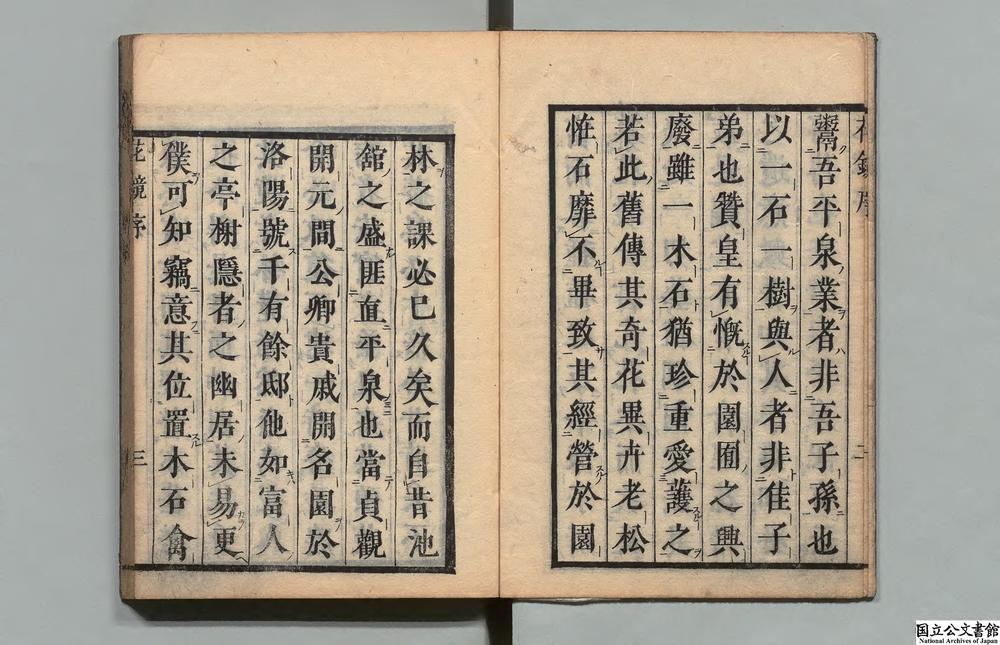 花鏡序
二
鬻吾平泉業者非吾子孫也
以一石一樹與人者非佳子
弟也贊皇有慨於園囿之興
廢雖一木石猶珍重愛護之
若此舊傳其奇花異卉老松
恠石靡不畢致其經營於園
林之課必已久矣而自昔池
舘之盛匪直平泉也當貞觀
開元間公卿貴戚開名園於
洛陽號千有餘邸他如富人
之亭榭隱者之幽居未易更
僕可知竊意其位置木石禽
花鏡序
三
国立公文書館
National Archives of Japan